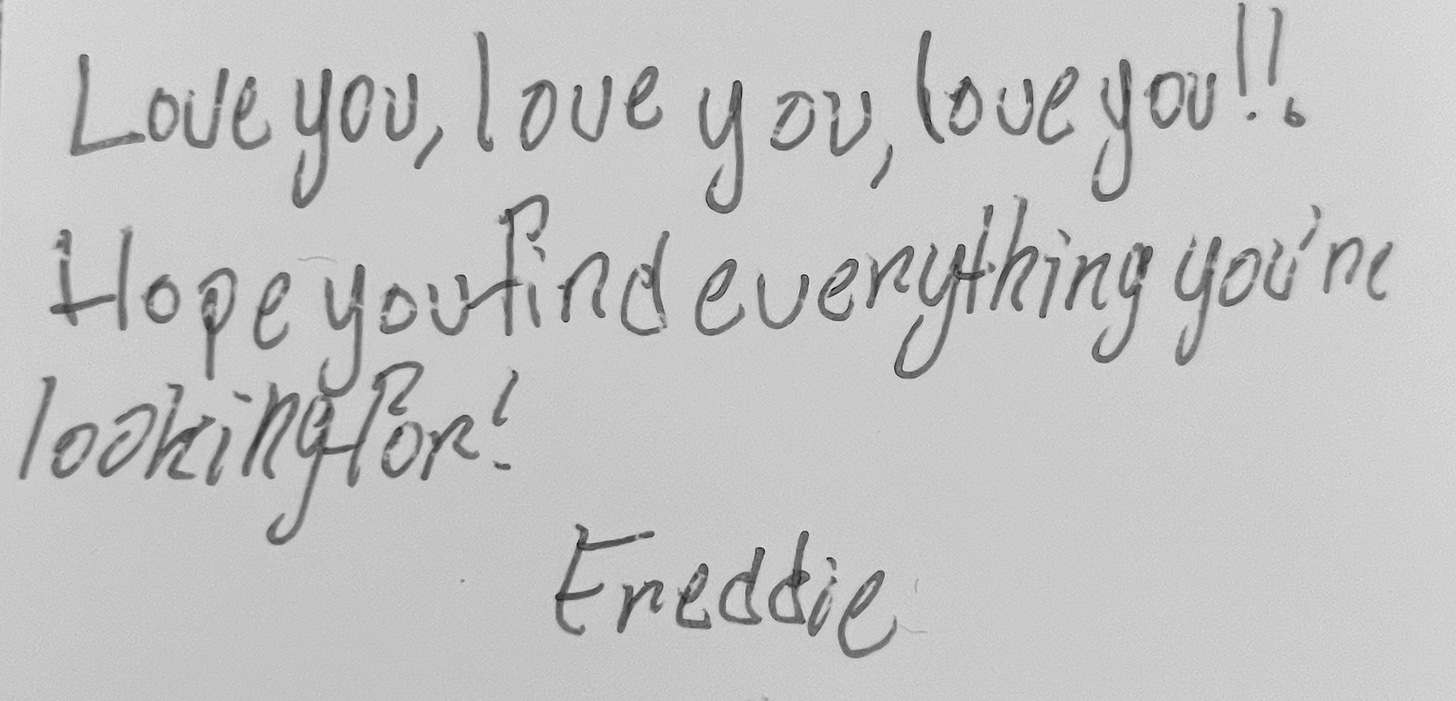 Love you, love you, love you!!
Hope you find everything you're
looking for!
Freddie